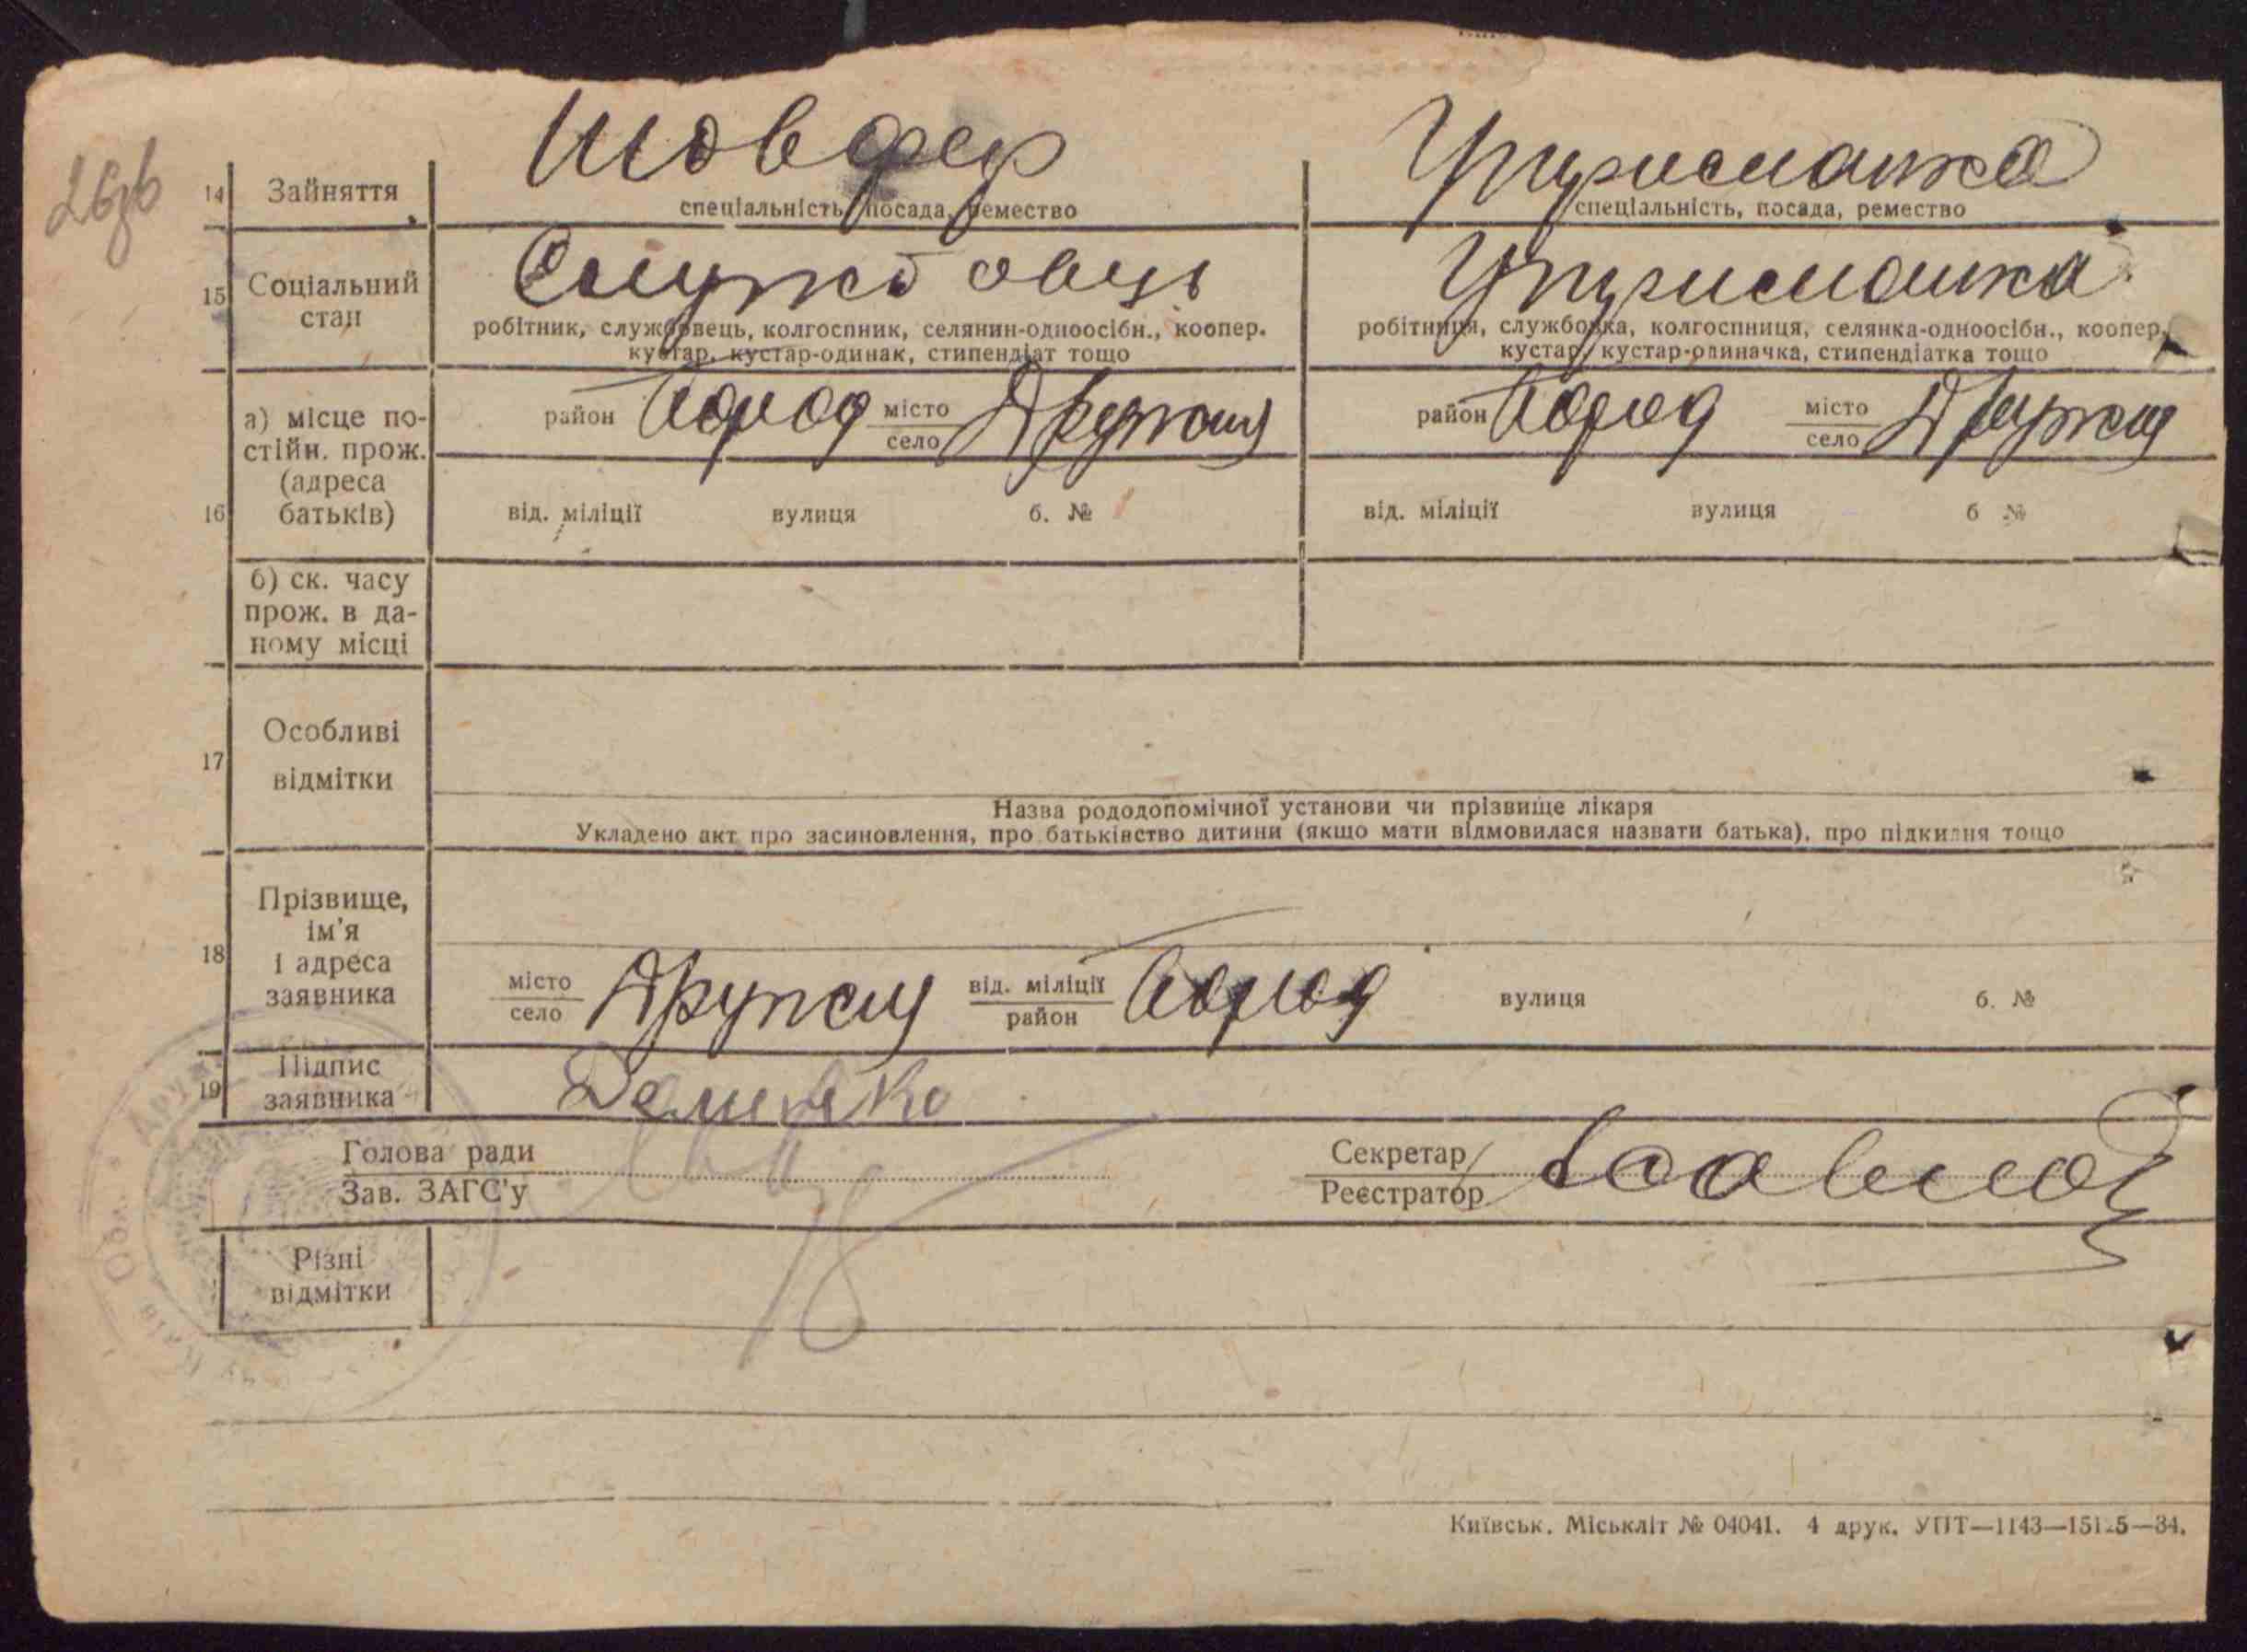 26зв
Шовфер
14 Зайняття
спеціальність, посада, ремество
спеціальність, посада, ремество
Службовець
15 Соціальний стан
робітник, службовець, колгоспник, селянин-одноосібн., коопер.
кустар, кустар-одинак, стипендіат тощо
робітниця, службовка, колгоспниця, селянка-одноосібн., коопер.
кустар, кустар-одиначка, стипендіатка тощо
16 а) місце постійн. прож. (адреса батьків)
район Бород місто село Дружня
район Бород місто село Дружня
від. міліції вулиця б. №
від. міліції вулиця б №
б) ск. часу прож. в даному місці
17 Особливі відмітки
Назва рододопомічної установи чи прізвище лікаря
Укладено акт про засиновлення, про батьківство дитини (якщо мати відмовилася назвати батька), про підкидня тощо
18 Прізвище, ім'я і адреса заявника
місто село Дружня від. міліції район Бород вулиця б. №
19 Підпис заявника
Голова ради
Зав. ЗАГС'у
Секретар
Реєстратор
Різні відмітки
Київськ. Міськліт № 04041. 4 друк. УПТ—1143—15125—34.